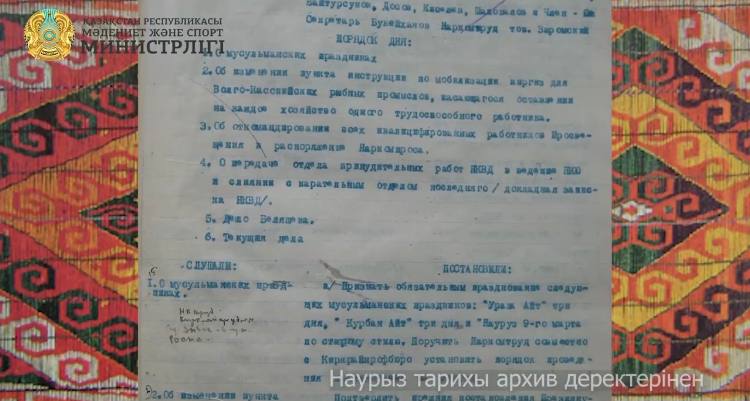 ҚАЗАҚСТАН РЕСПУБЛИКАСЫ
МӘДЕНИЕТ ЖӘНЕ СПОРТ
МИНИСТРЛІГІ
Байтурсунов, Досов, Киселев, и Член -
Секретарь Букейханов Наркомтруд тов. Варомский
ПОРЯДОК ДНЯ:
1. О мусульманских праздниках
2. Об изменении пункта инструкции по мобилизации киргиз для
Волго-Касспийских рыбных промыслов, касающегося оставления
на каждое хозяйство одного трудоспособного работника.
3. Об откомандировании всех квалифицированных работников Просве-
щения в распоряжение Наркомпроса.
4. О передаче отдела принудительных работ НКВД в ведение НКЮ
и слиянии с карательным отделом последнего / докладная запис-
ка НКВД/.
5. Дело Беляцева.
6. Текущия дела
СЛУШАЛИ:
ПОСТАНОВИЛИ:
1. О мусульманских празд-
никах.
а/ Признать обязательным празднование следую-
щих мусульманских праздников: "Ураза Айт" три
дня, " Курбан Айт" три дня и "Науруз 9-го марта
по старому стилю. Поручить Наркомтруд совместно
с Киркрайпрофбюро установить порядок проведе-
ния
2. Об изменении пункта
Подтвердить
Наурыз тарихы архив деректерінен